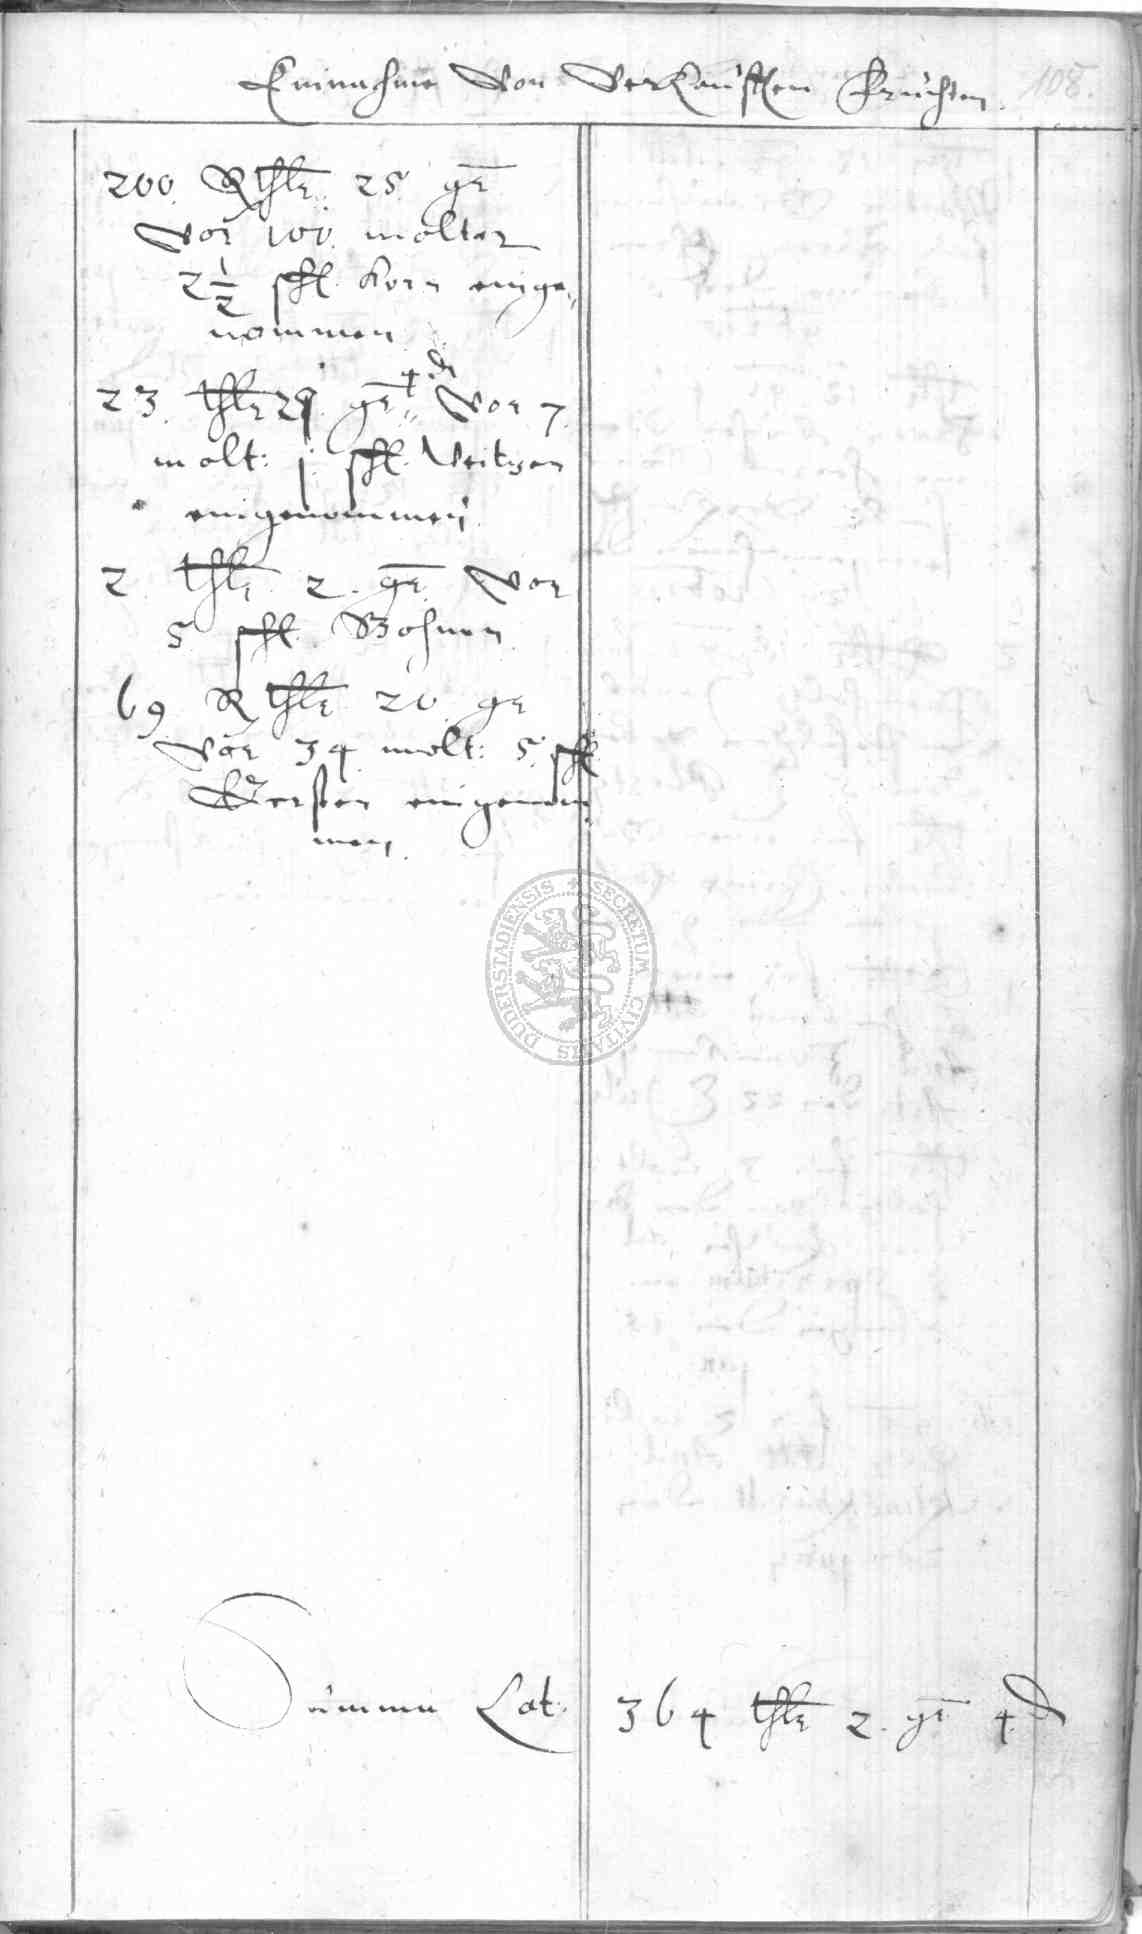 Einnahme Von Verkaufften Früchten. 108.
200. Rthlr. 25 gr
Vor 100. molter
2 1/2 schl. Korn einge„
nommen
23. thlr 29. gr 4 d„ Vor 7.
molt: j. schl. Weitzen
eingenommen
2 thlr. 2. gr. Vor
5 schl. Bohnen
69 Rthlr 20. gr
Vor 34 molt: 5. schl.
Gersten eingenom
men.
DUDERSTADIENSIS SECRETUM CIVITATIS
Summa Lat. 364 thlr 2. gr 4 d